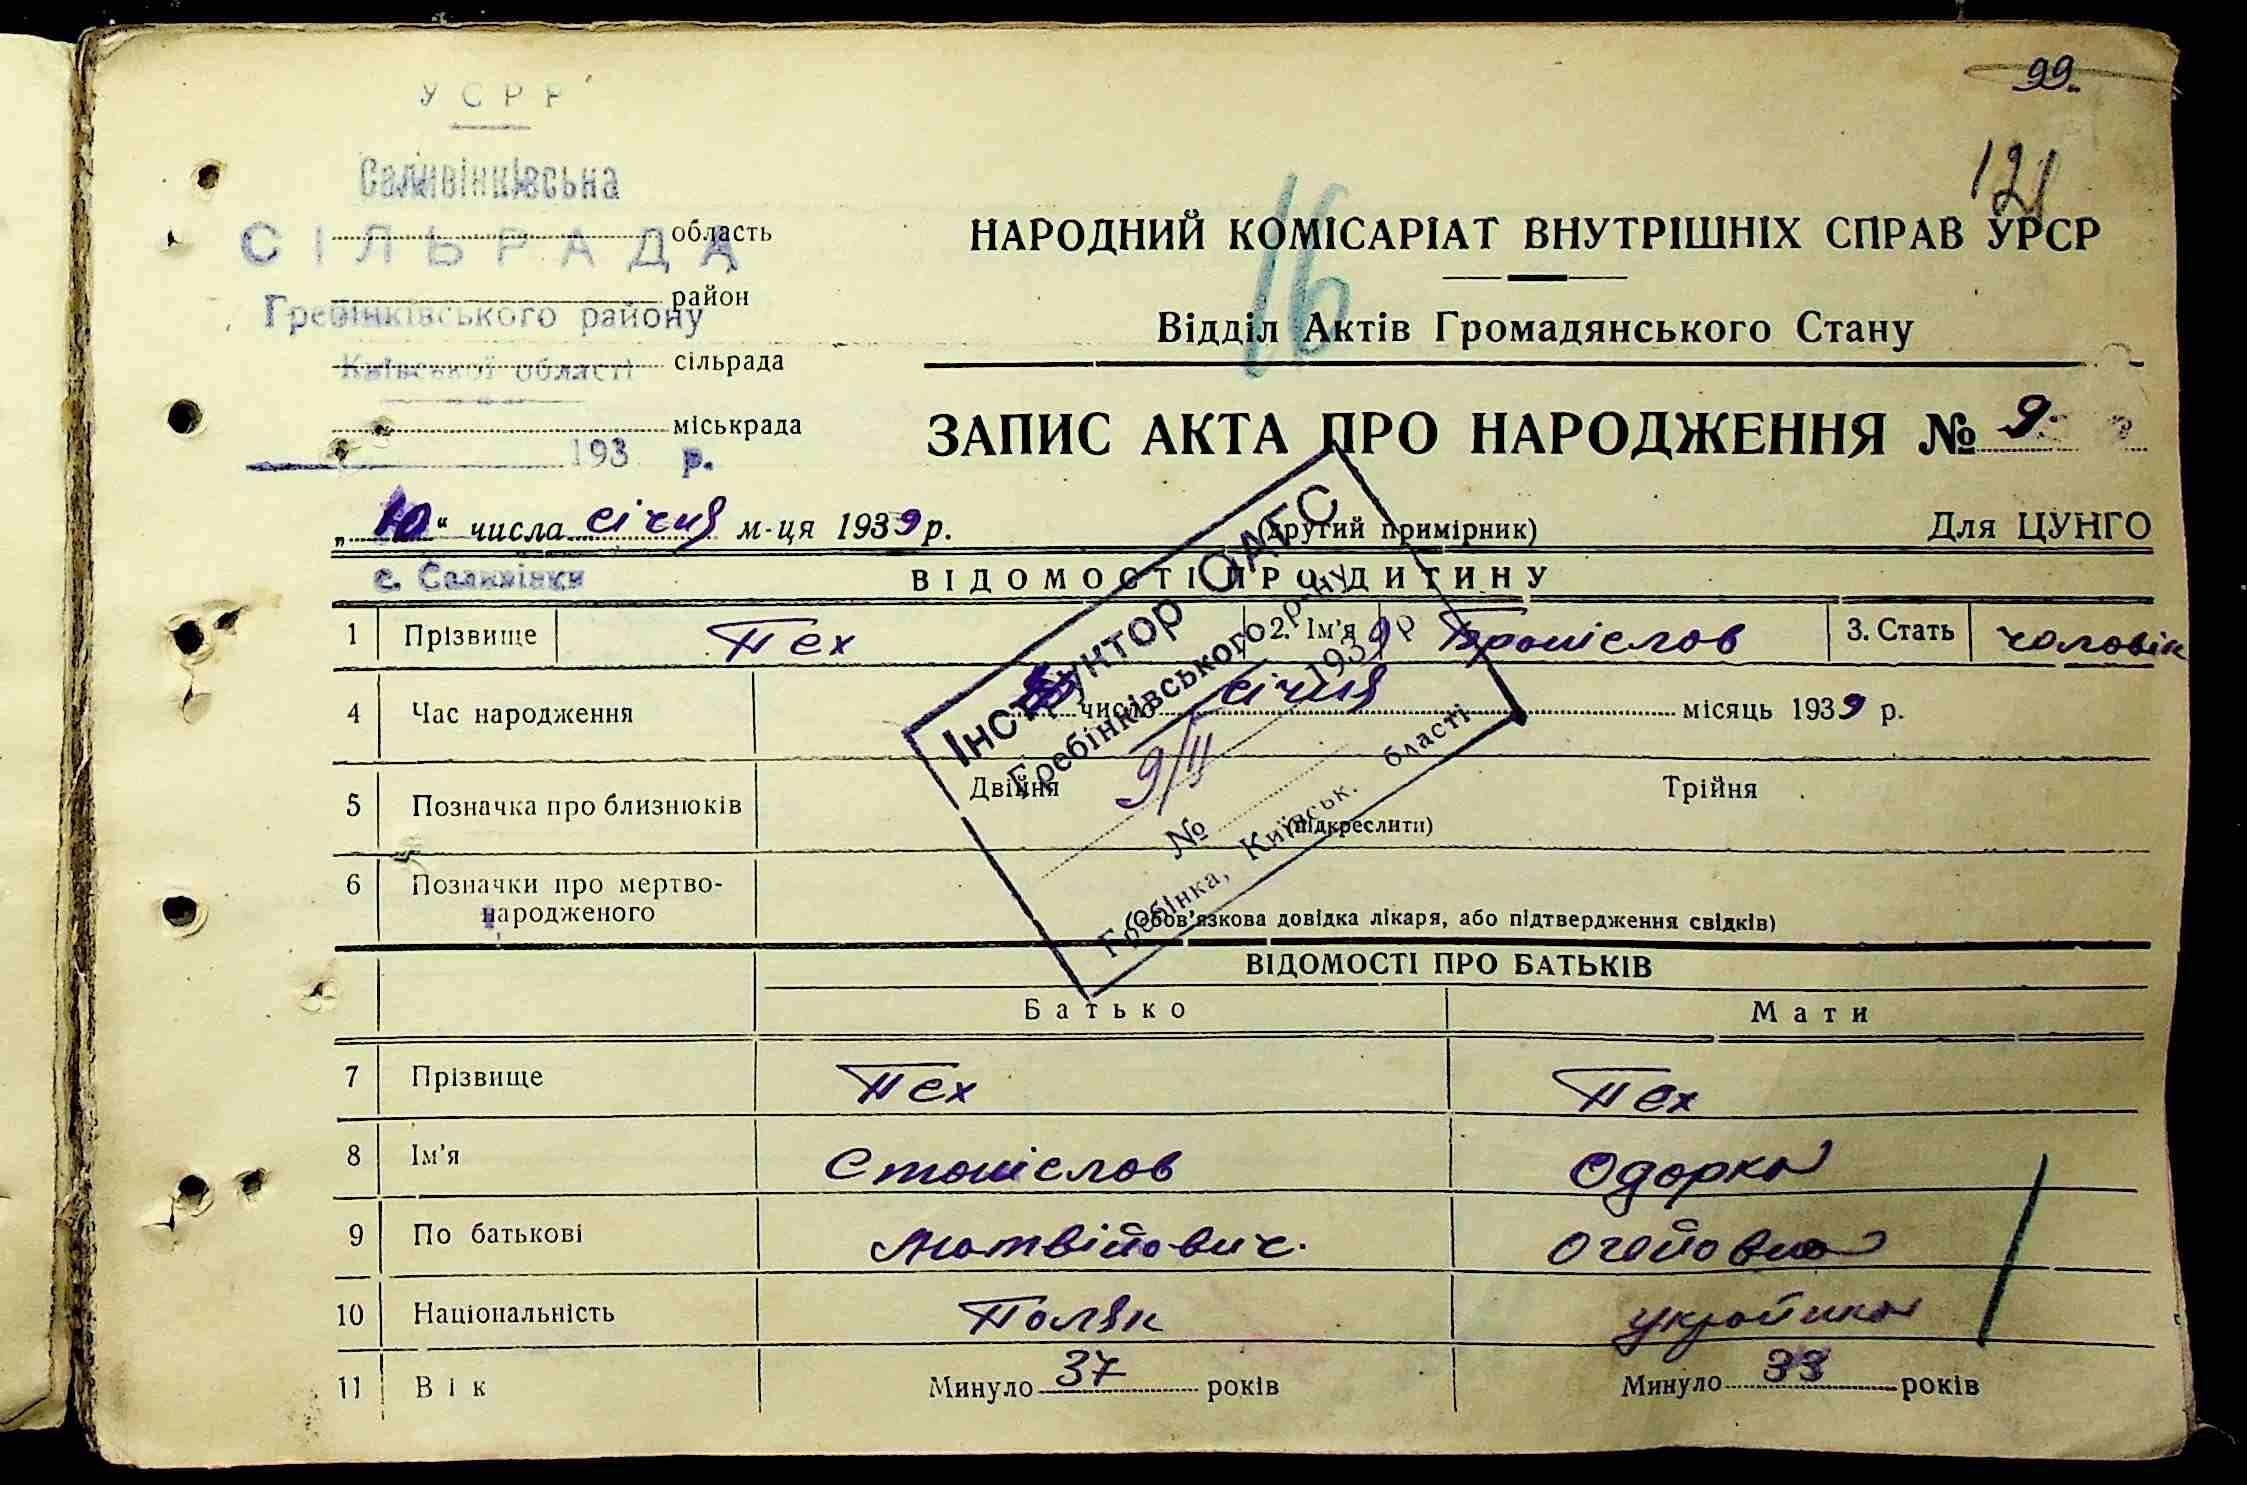 99.
121
16
УСРР
Саливінківська
СІЛЬРАДА
область
район
Гребінківського району
сільрада
Київської області
міськрада
193 р.
НАРОДНИЙ КОМІСАРІАТ ВНУТРІШНІХ СПРАВ УРСР
Відділ Актів Громадянського Стану
ЗАПИС АКТА ПРО НАРОДЖЕННЯ № 9
„10“ числа січня м-ця 1939 р.
(другий примірник)
Для ЦУНГО
с. Саливінки
ВІДОМОСТІ ПРО ДИТИНУ
1 Прізвище Пех 2. Ім'я Броніслов 3. Стать чоловік
4 Час народження число січня місяць 1939 р.
5 Позначка про близнюків Двійня Трійня
(підкреслити)
6 Позначки про мертво-
народженого
(Обов'язкова довідка лікаря, або підтвердження свідків)
Інструктор ОАГС
Гребінківського р-ну
9/II 1939 р
№
Гребінка, Київськ. області
ВІДОМОСТІ ПРО БАТЬКІВ
Батько Мати
7 Прізвище Пех Пех
8 Ім'я Станіслов Одарка
9 По батькові Матвійович. Огейовна
10 Національність Поляк українка
11 Вік Минуло 37 років Минуло 33 років